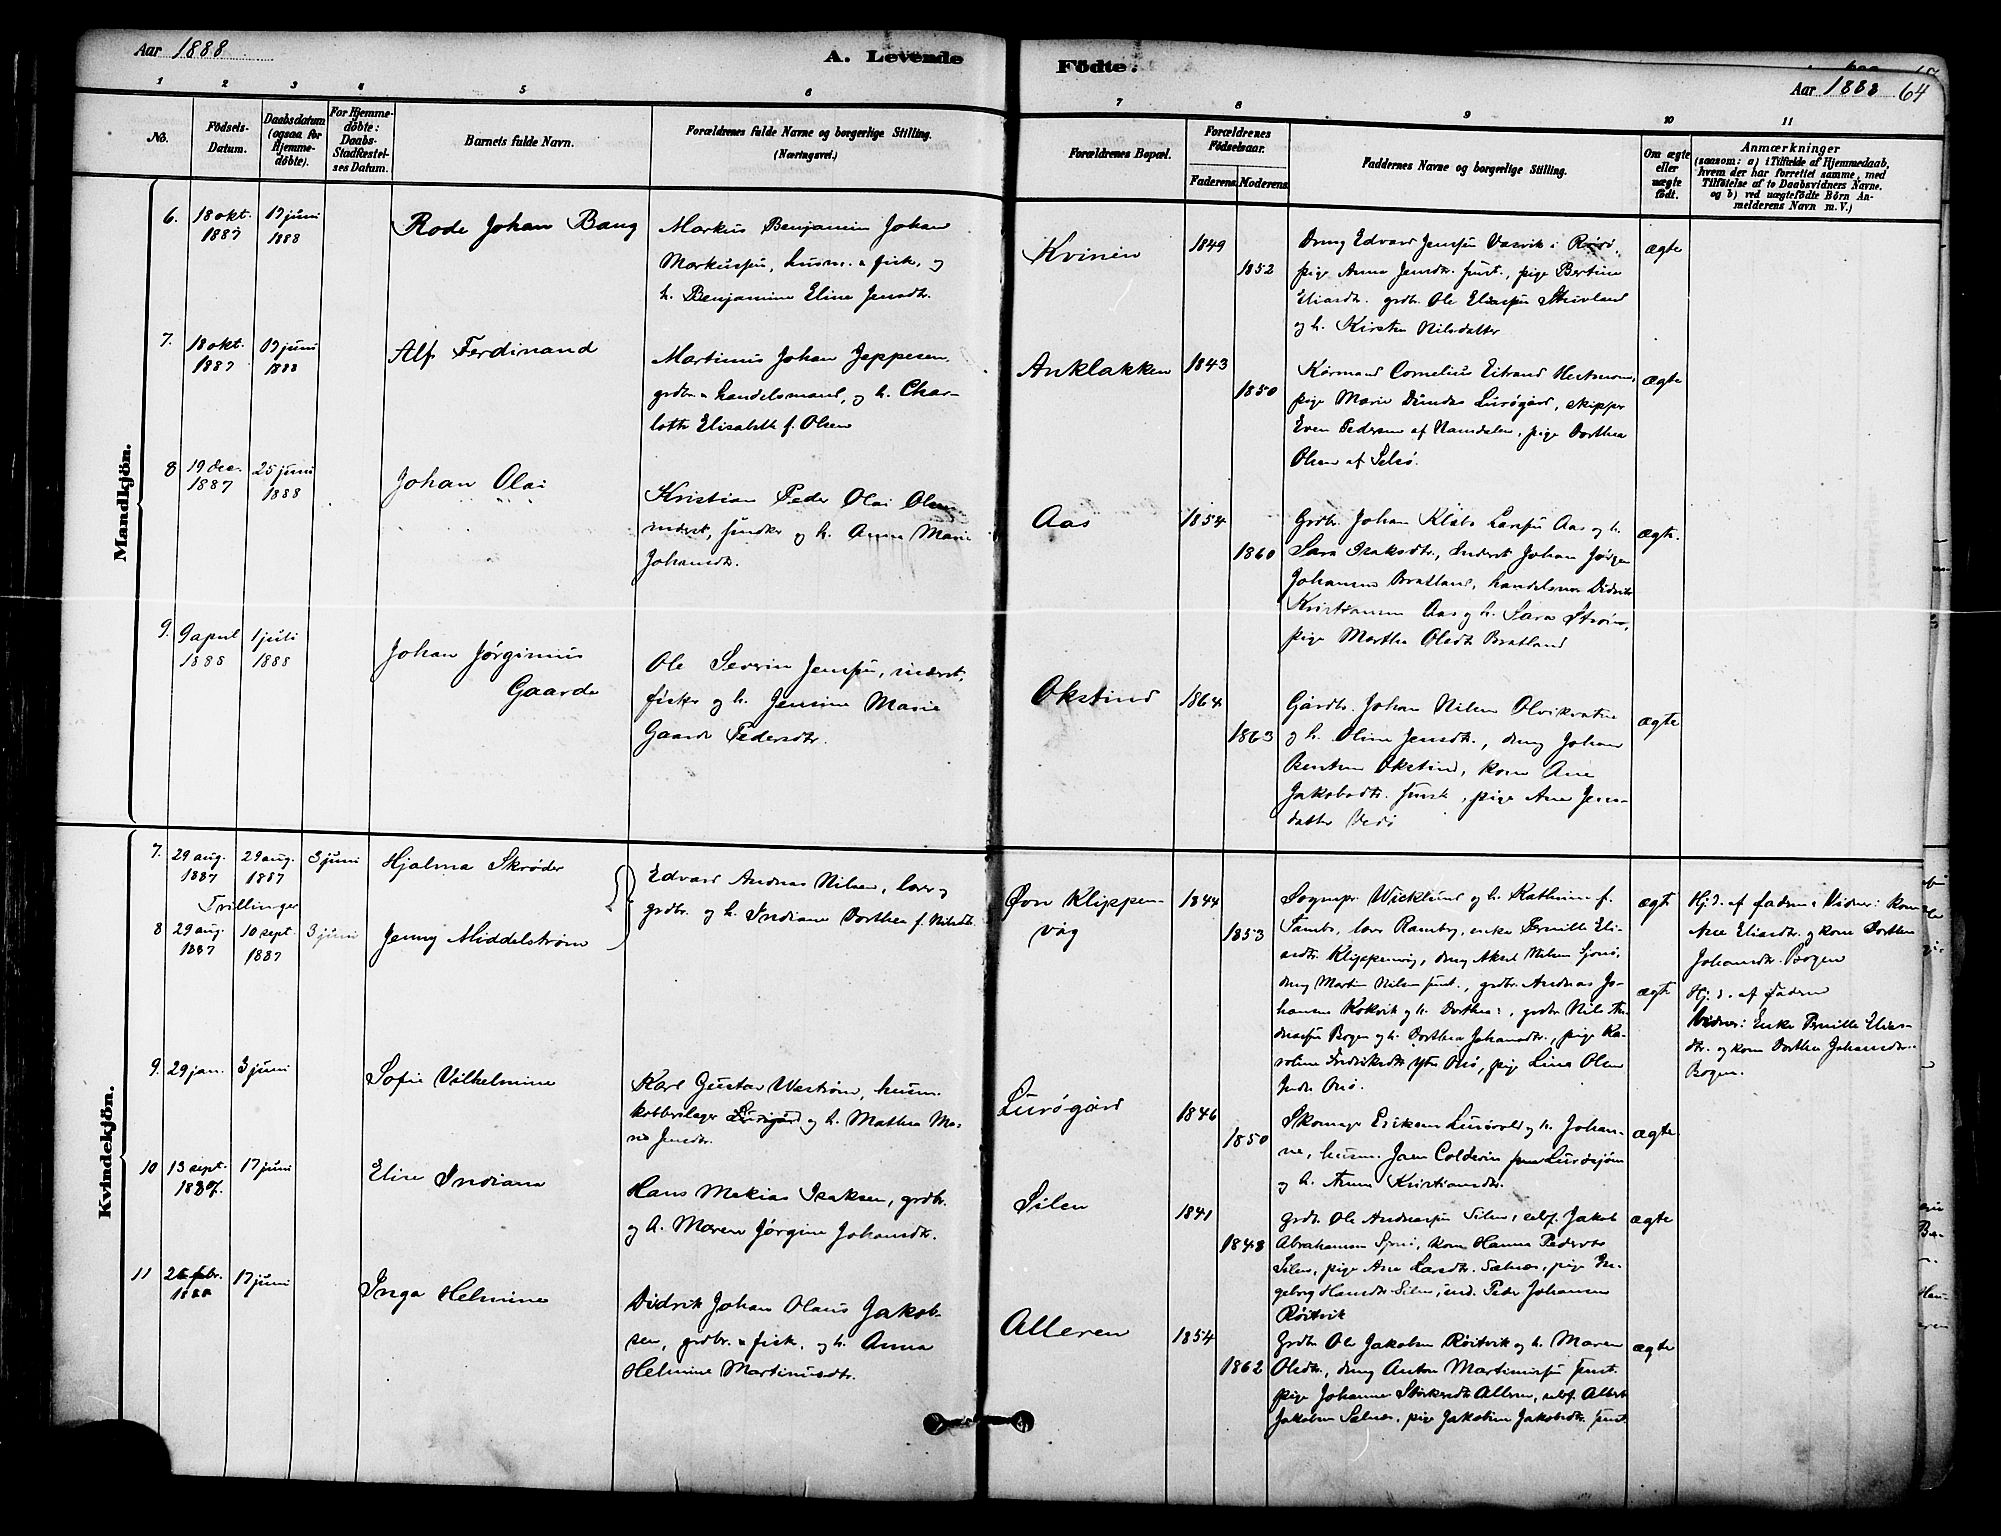 Aar 1888
A. Levende
Födte.
Aar 1888 64
1 2 3 4 5 6 7 8 9 10 11
No.
Födsels-Datum.
Daabsdatum (ogsaa for Hjemme-döbte).
For Hjemme-döbte: Daabs-Stadfæstel-ses Datum.
Barnets fulde Navn.
Forældrenes fulde Navne og borgerlige Stilling. (Næringsvei.)
Forældrenes Bopæl.
Forældrenes Födselsaar.
Faderens. Moderens.
Faddernes Navne og borgerlige Stilling.
Om ægte eller uægte födt.
Anmærkninger
(saasom: a) i Tilfælde af Hjemmedaab,
hvem der har forrettet samme, med
Tilföielse af to Daabsvidners Navne.
og b) ved uægtefödte Börn An-
melderens Navn m. V.)
Mandkjön.
6. 18 okt. 1887 17 juni 1888 Rode Johan Bang
Markus Benjamin Johan
Markussen, husm. & fisk. og
h. Benjamine Eline Jensdtr.
Kvinen 1849 1852
Dreng Edvard Jenssen Vasvik i Rødø,
pige Anna Jensdtr. sunst., pige Bertine
Eliasdtr. grdbr. Ole Eliassen Struvland
og h. Kirsten Nilsdatter
ægte
7. 18 okt. 1887 17 juni 1888 Alf Ferdinand
Martinus Johan Jeppesen
grdbr. & handelsmand, og h. Char-
lotte Elisabeth f. Olsen
Anklakken 1843 1850
Cornelius Eitrand
pige Marie Dundas Lurøgård, skipper
Even Pedersen af Namdalen, pige Dorthea
Olsen af Selsø.
ægte
8 19 dec. 1887 25 juni 1888 Johan Olai
Kristian Peder Olai Olsen
inderst, og h. Anne Marie
Johansdtr.
Aas 1854 1860
Grdbr. Johan Klæbo Larssen Aas og h.
Sara Isaksdtr., Inderst Johan Jørgen
Johansen Bratland, handelsmand Didrik
Kristiansen Aas og h. Sara Strøm,
pige Martha Olsdtr. Bratland
ægte.
9. 9 april 1888 1 juli 1888 Johan Jørginius
Gaarde
Ole Severin Jenssen, inderst,
fisker og h. Jensine Marie
Gaarde Pedersdtr.
Okstind 1864 1863
Gårdbr. Johan Nilsen Olvikvatne
og h. Oline Jensdtr., dreng Johan
Bentsen Okstind, kone Ane
Jakobsdtr. sunst, pige Ane Jens-
datter
ægte
Kvindekjön.
7. 29 aug. 1887 29 aug. 1887 3 juni Hjalma Skrøder
Trillinger
8 29 aug. 1887 10 sept. 1887 3 juni Jenny Middelstrøm
Edvard Andreas Nilsen, lærer og
grdbr. og h. Indiane Dorthea f. Nilsdtr.
Øvn Klippen-
våg
1844 1853
Sognepr. Wicklund og h. Kathrine f.
Tambs, lærer Ramby, enke Pernille Eli-
asdtr. Klippenvåg, dreng Aksel Nilsen Sjonø,
dreng Martin Nilsen sunst., grdbr. Andreas Jo-
hansen Kokvik og h. Dorthea, grdbr. Nils An-
dreassen Bogen og h. Dorthea Johansdtr., pige Ka-
roline Fredriksdtr. Ytre Onø, pige Lina Olsen
Indre Onø.
ægte
ægte
Hj. d. af faderen. Vidner: kone
Ane Eliasdtr. og kone Dorthea
Johansdtr. Bogen
Hj. d. af Faderen
Vidner: Enke Pernille Elias-
dtr. og kone Dorthea Johansdtr.
Bogen.
9. 29 jan. 3 juni Sofie Vilhelmine
Karl Gustav Westrøm, husm.
kobberslager og h. Mathea Ma-
rie Jensdtr.
Lurøgård 1846 1850
Skomager Eriksen Lurøvold og h. Johan-
ne, husm. Joen Colderin Lurøsjøen
og h. Anne Kristiansdtr.
ægte
10 13 sept. 1887. 17 juni Elise Indiana
Hans Mekias Isaksen, grdbr.
og h. Maren Jørgine Johansdtr.
Silen 1841 1848
Grdbr. Ole Andreassen Silen, selvf. Jakob
Abrahamsen Sjonø, kone Hanna Pedersdtr.
Silen, pige Ane Larsdtr. Selnes, pige In-
geborg Hansdtr. Silen, ind. Peder Johansen
Røitvik
ægte
11 26 febr. 1888 17 juni Inga Helmine
Didrik Johan Olaus Jakob-
sen, grdbr. & fisk. og h. Anna
Helmine Martinusdtr.
Alleren 1854 1862
Grdbr. Ole Jakobsen Røitvik og h. Maren
Olsdtr., dreng Anton Martinussen sunst.
pige Johanna Alleren, selvf. Albert
Jakobsen Selnes, pige Jakobine Jakobsdtr. sunst.
ægte